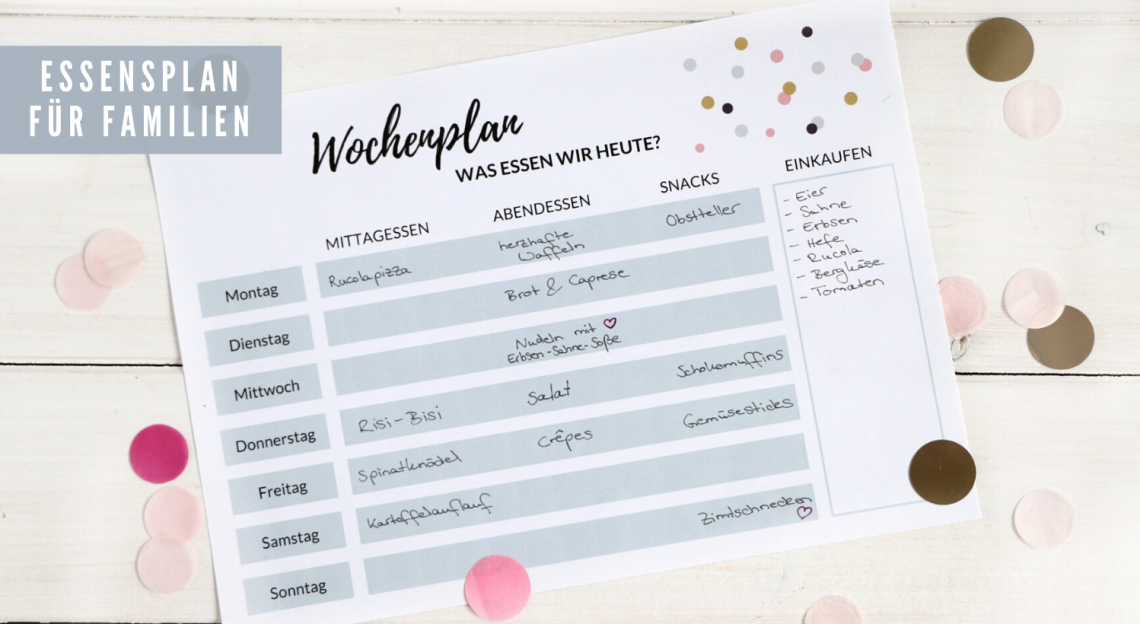 ESSENSPLAN
FÜR FAMILIEN
Wochenplan
WAS ESSEN WIR HEUTE?
MITTAGESSEN ABENDESSEN SNACKS
Montag Rucolapizza herzhafte Waffeln Obstteller
Dienstag Brot & Caprese
Mittwoch Nudeln mit ♡ Erbsen-Sahne-Soße
Donnerstag Risi-Bisi Salat Schokomuffins
Freitag Spinatknödel Crêpes Gemüsesticks
Samstag Kartoffelauflauf
Sonntag Zimtschnecken ♡
EINKAUFEN
- Eier
- Sahne
- Erbsen
- Hefe
- Rucola
- Bergkäse
- Tomaten